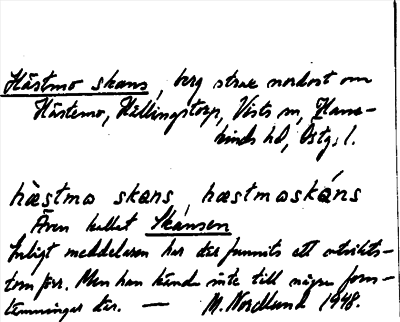 Hästmo skans, berg strax nordost om
Hästemo, Hällingstorp, Vists sn, Hane-
kinds hd, Östg. l.
hästmo skans, hæstmoskáns
Även kallat Skansen
Enligt meddelaren har där funnits ett utsikts-
torn förr. Men han kände inte till några forn-
lämningar där. — M. Nordlund 1948.